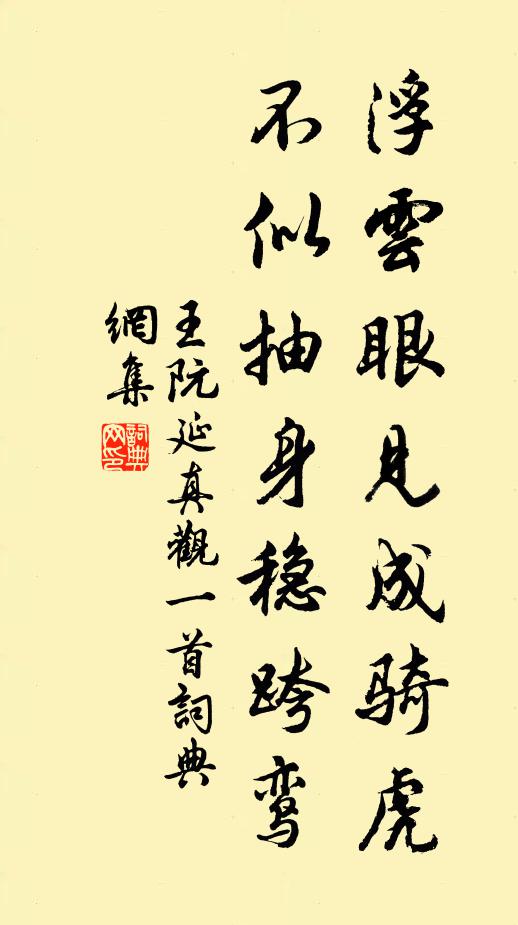 浮雲眼見成骑虎
不似抽身稳跨鸾
王阮延真觀一首詞典
網集
詞典網印